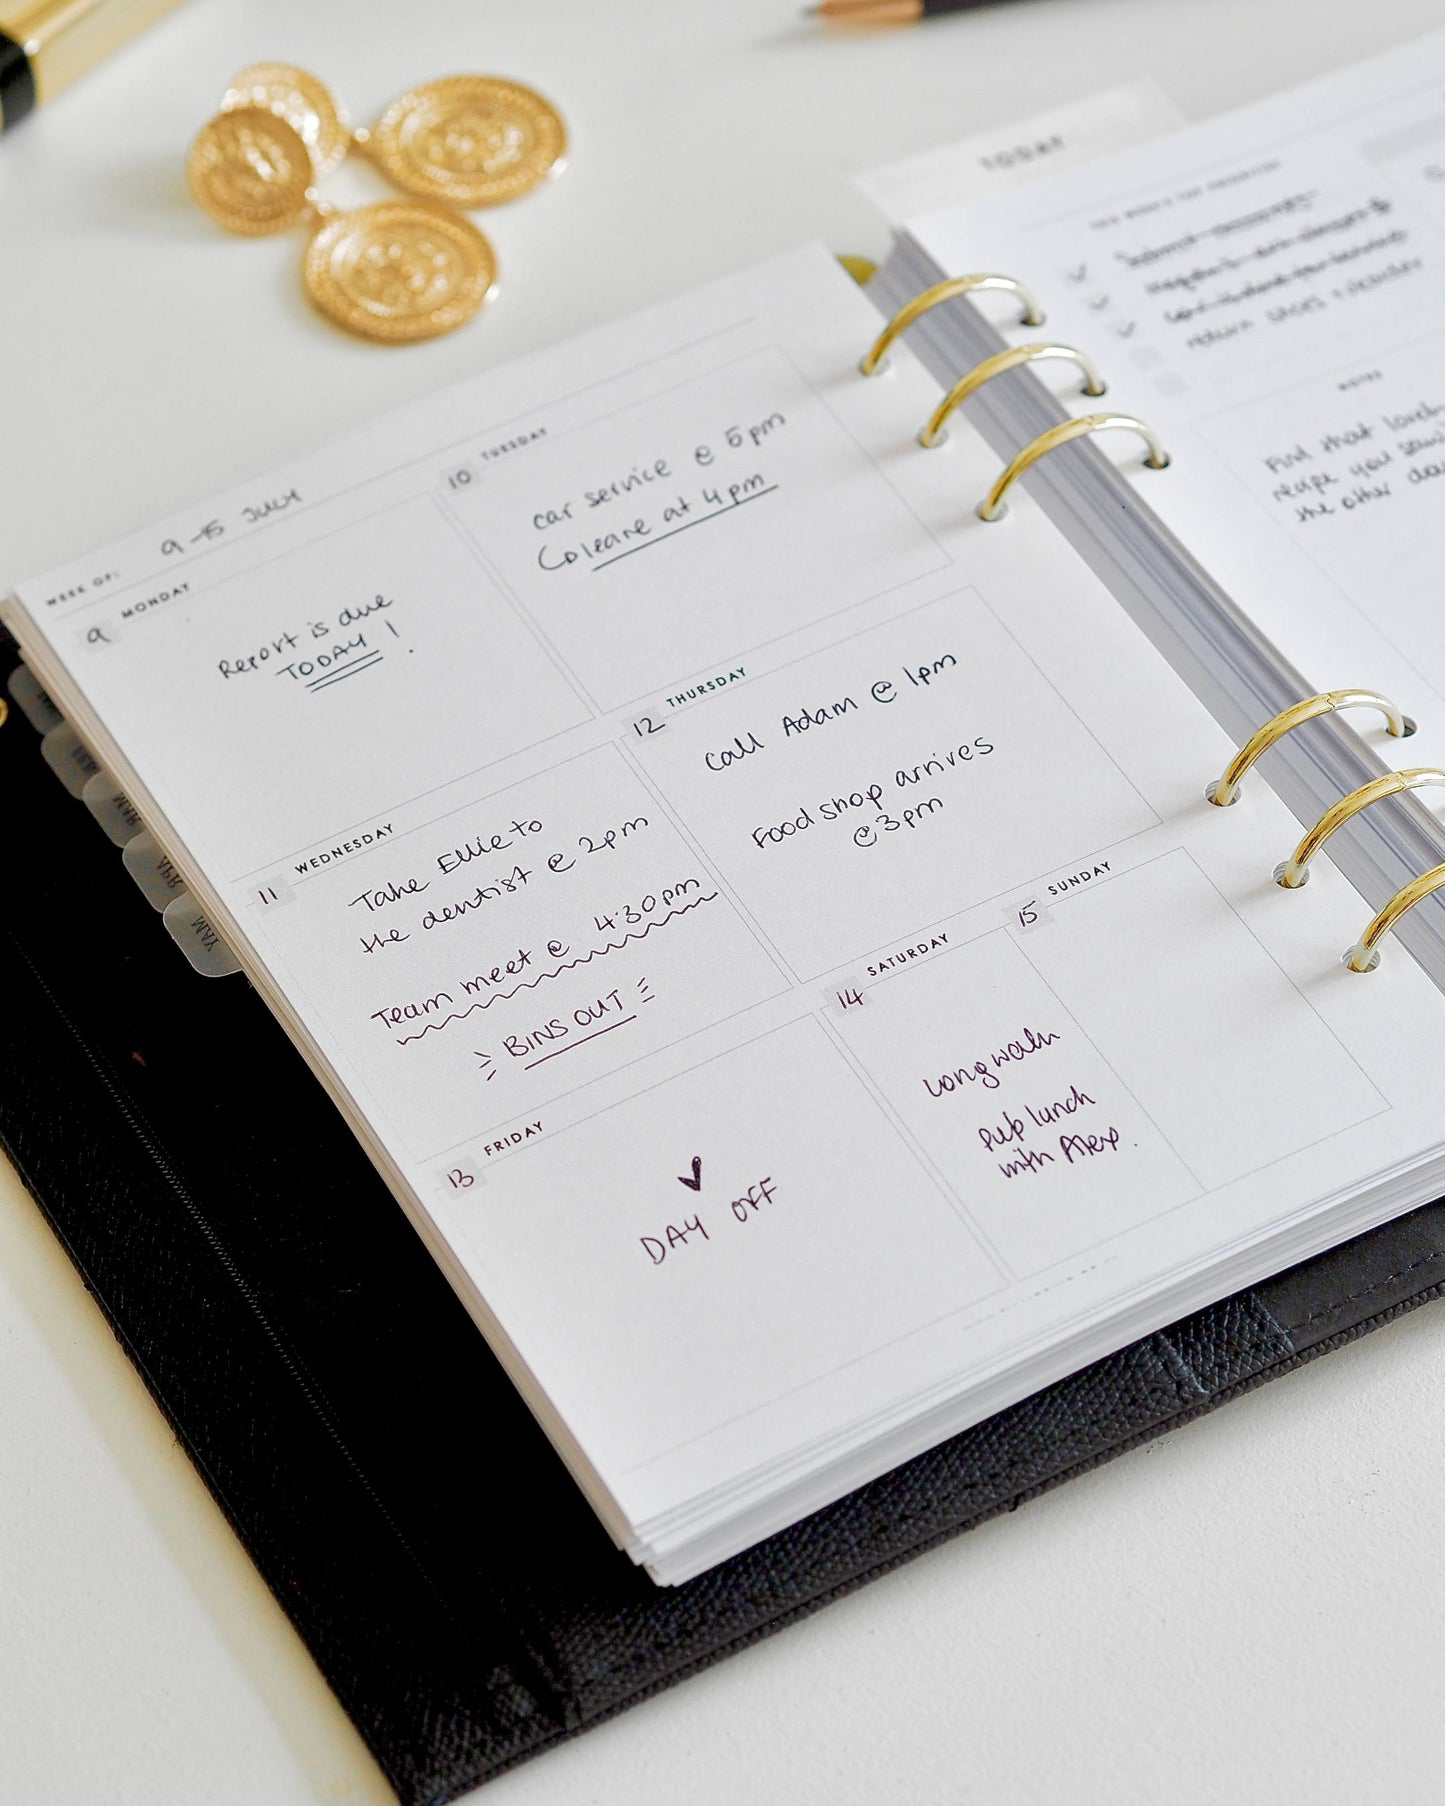 WEEK OF: 9-15 JULY
9 MONDAY
Report is due
TODAY!
10 TUESDAY
car service @ 5pm
at 4pm
11 WEDNESDAY
Take Ellie to
the dentist @ 2pm
Team meet @ 4:30pm
BINS OUT
12 THURSDAY
Call Adam @ 1pm
Food shop arrives
@ 3pm
13 FRIDAY
DAY OFF
14 SATURDAY
Long walk
Pub lunch
with Alex.
15 SUNDAY
MAR
APR
MAY
TODAY
return shoes +
NOTES
Find that
recipe you
the other